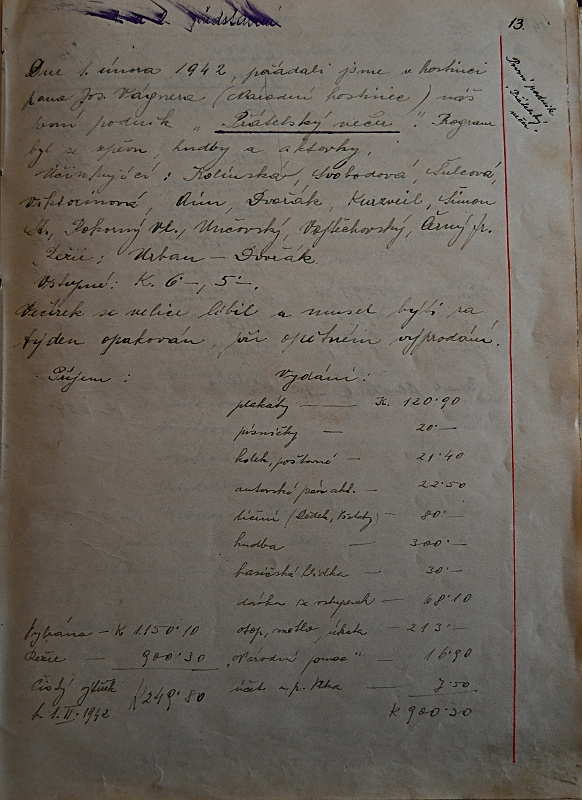 představení
13.
První podnik
"Přátelský
večer".
Dne 1. února 1942, pořádali jsme v hostinci
pana Jos. Vágnera (Národní hostinec) náš
první podnik „Přátelský večer". Program
byl ze zpěvu, hudby a aktovky.
Účinkující: Kolínská, Svobodová, Šulcová,
Viktorinová, Aim, Dvořák, Kurzveil, Šimon
St., Pokorný Vl., Unčovský, Vojtěchovský, Černý fr.
Režie: Urban – Dvořák.
Vstupné: K. 6·–, 5·–.
Večírek se velice líbil a musel býti za
týden opakován, při opětném vyprodání.
Příjem: Vydání:
plakáty — K. 120·90
písničky — 20·—
kolek, poštovné — 21·40
autorské práv. — 22·50
líčení — 80·—
hudba — 300·—
hasičská hlídka — 30·—
dávka ze vstupenek — 68·10
Vybráno — K 1.150·10 otop, světlo, — 213·—
Režie — 900·30 „Národní pomoc" — 16·90
Čistý výtěžek K 249·80 účet u p. — 7·50
k 1.II.1942 K 900·30